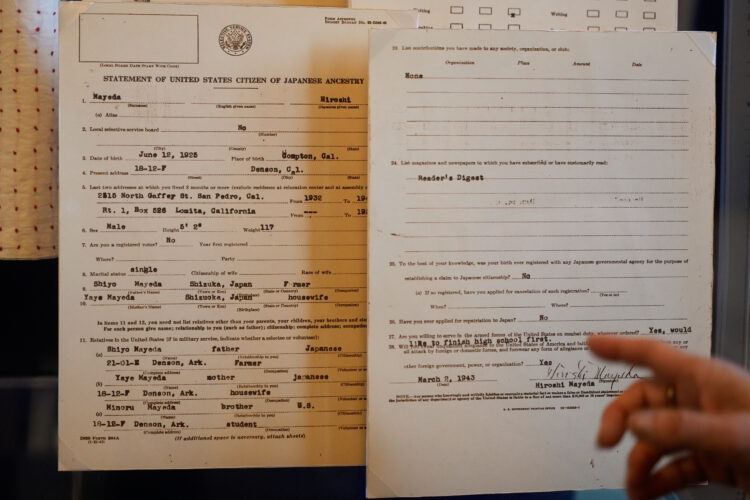 FORM APPROVED
(LOCAL BOARD DATE STAMP WITH CODE)
STATEMENT OF UNITED STATES CITIZEN OF JAPANESE ANCESTRY
1. Mayeda Hiroshi
(Surname) (English given name) (Japanese given name)
(a) Alias
2. Local selective service board No
(Number)
(City) (County) (State)
3. Date of birth June 12, 1925 Place of birth Compton, Cal.
4. Present address 18-12-F Denson, Cal.
(Street) (City) (State)
5. Last two addresses at which you lived 3 months or more (include residence at relocation center and at assembly
2815 North Gaffey St. San Pedro, Cal. From 1932 To
Rt. 1, Box 526 Lomita, California From To
6. Sex Male Height 5' 2" Weight 117
7. Are you a registered voter? No Year first registered
Where? Party
8. Marital status single Citizenship of wife Race of wife
9. Shiyo Mayeda Shizuka, Japan F rmer
(Father's Name) (Town or Ken) (State or Country) (Occupation)
10. Yaye Mayeda Shizuoka, Japan housewife
(Mother's Name) (Town or Ken) (State or Country) (Occupation)
(Birthplace)
In items 11 and 12, you need not list relatives other than your parents, your children, your brothers and
For each person give name; relationship to you (such as father); citizenship; complete address;
11. Relatives in the United States (if in military service, indicate whether a selectee or volunteer):
(a) Shiyo Mayeda father Japanese
(Name) (Relationship to you) (Citizenship)
21-01-E Denson, Ark. Farmer
(Complete address) (Occupation)
(b) Yaye Mayeda mother japanese
(Name) (Relationship to you) (Citizenship)
18-12-F Denson, Ark. housewife
(Complete address) (Occupation)
(c) Minoru Mayeda brother U.S.
(Name) (Relationship to you) (Citizenship)
18-12-F Denson, Ark. student
(Complete address) (Occupation)
DSS Form 304A
(If additional space is necessary, attach sheets)
Writing
Writing
23. List contributions you have made to any society, organization, or club:
Organization Place Amount Date
None
24. List magazines and newspapers to which you have subscribed or have customarily read:
Reader's Digest
25. To the best of your knowledge, was your birth ever registered with any Japanese governmental agency for the purpose of
establishing a claim to Japanese citizenship? No
(a) If so registered, have you applied for cancelation of such registration?
(Yes or no)
When? Where?
26. Have you ever applied for repatriation to Japan? No
27. Are you willing to serve in the armed forces of the United States on combat duty, wherever ordered? Yes, would
like to finish high school first.
28. Will
all attack by foreign or domestic forces, and forswear any form of allegiance
other foreign government, power, or organization? Yes
March 2, 1943 Hiroshi Mayeda
(Date) Hiroshi Mayeda